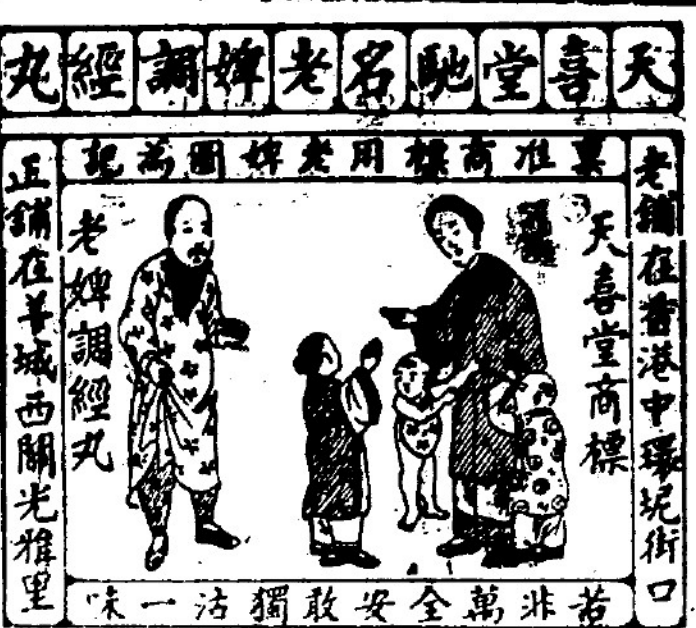 天喜堂馳名老婢調經丸
稟准商標用老婢圖為記
老舖在香港中環坭街口
天喜堂商標
老婢調經丸
正舖在羊城西關光雅里
若非萬全安敢獨沽一味